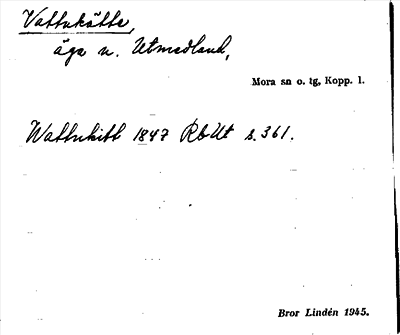 Vattukätte,
äga n. Utmedland,
Mora sn o. tg, Kopp. l.
Wattukitt 1847 RbUt s. 361.
Bror Lindén 1945.